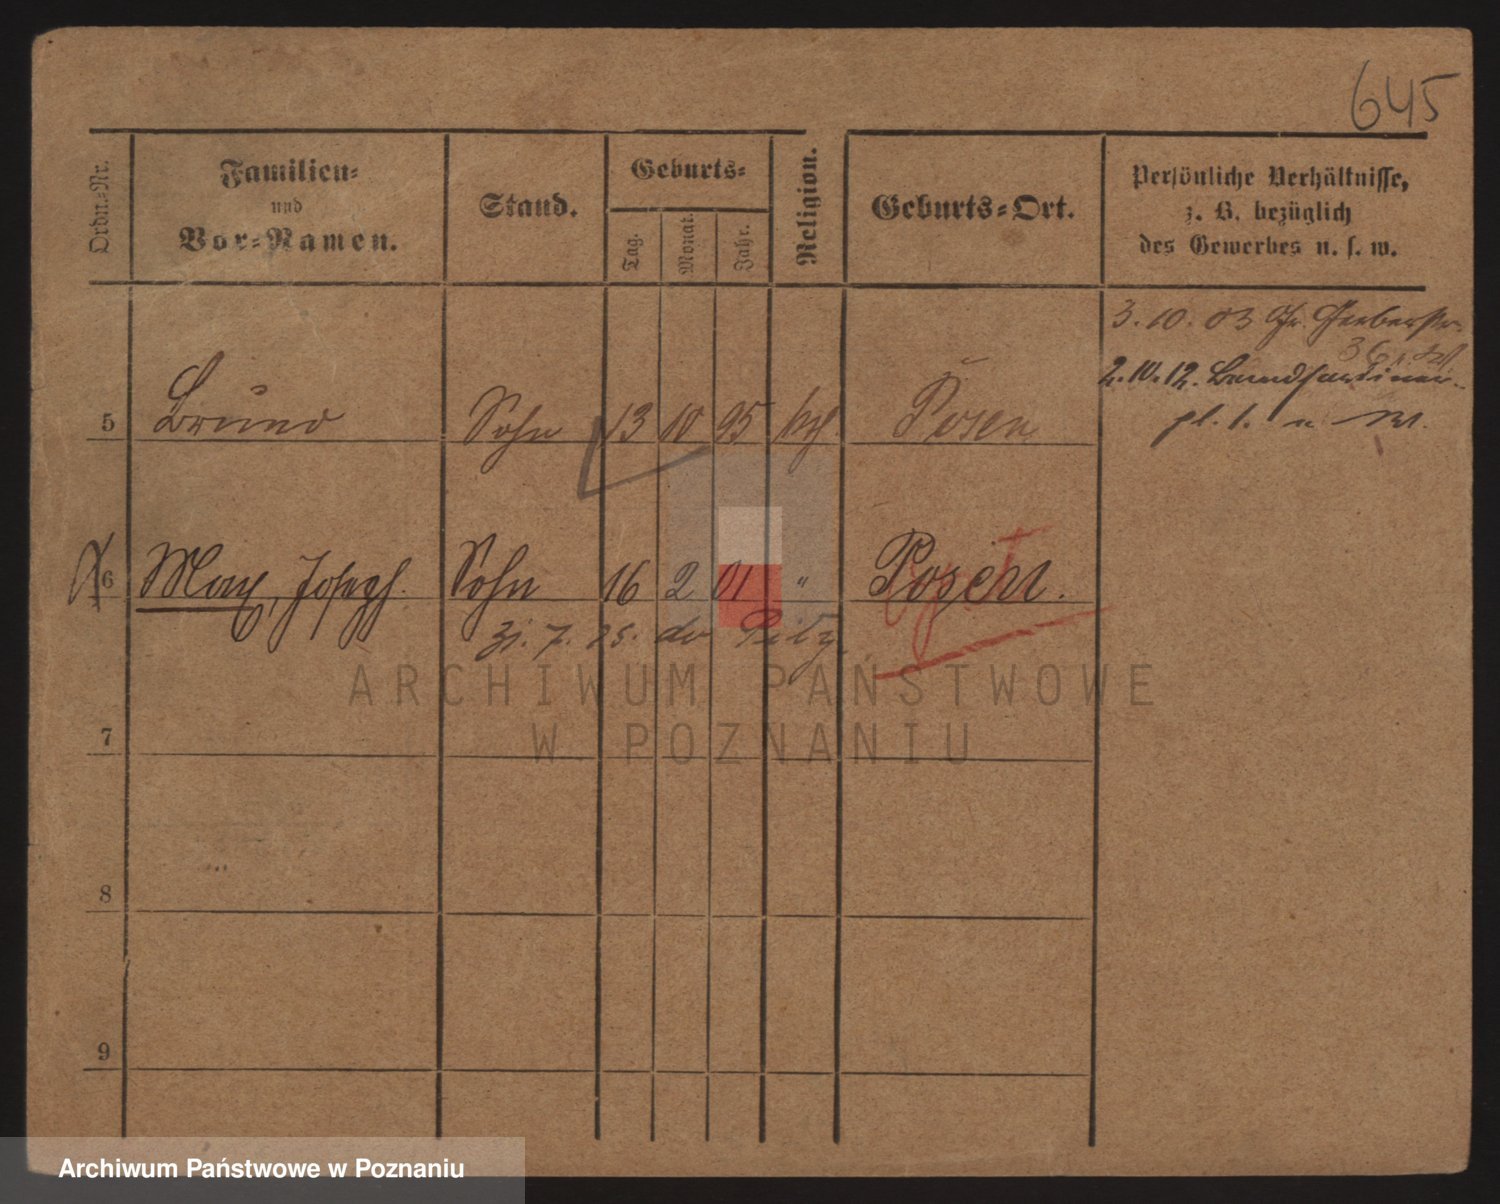 645
Ordn.-Nr.
Familien-
und
Vor-Namen.
Stand.
Geburts-
Tag.
Monat.
Jahr.
Religion.
Geburts-Ort.
Persönliche Verhältnisse,
z. B. bezüglich
des Gewerbes u. s. w.
3. 10. 03 Gr. Gerberstr.
36
2. 10. 12.
5 Bruno Sohn 13 10 95 kth. Posen
pl. 1.
6 Max, Joseph. Sohn 16 2 01 " Posen.
31. 7. 25.
ARCHIWUM PAŃSTWOWE
W POZNANIU
7
8
9
Archiwum Państwowe w Poznaniu